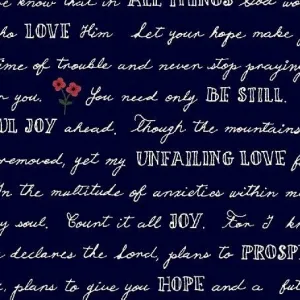 we know that in ALL THINGS God wo
who LOVE Him Let your hope make y
time of trouble and never stop praying
r you. You need only BE STILL.
UL JOY ahead. Though the mountains
removed, yet my UNFAILING LOVE f
In the multitude of anxieties within m
y soul. Count it all JOY. For I kn
declares the Lord, plans to PROSP
, plans to give you HOPE and a fu